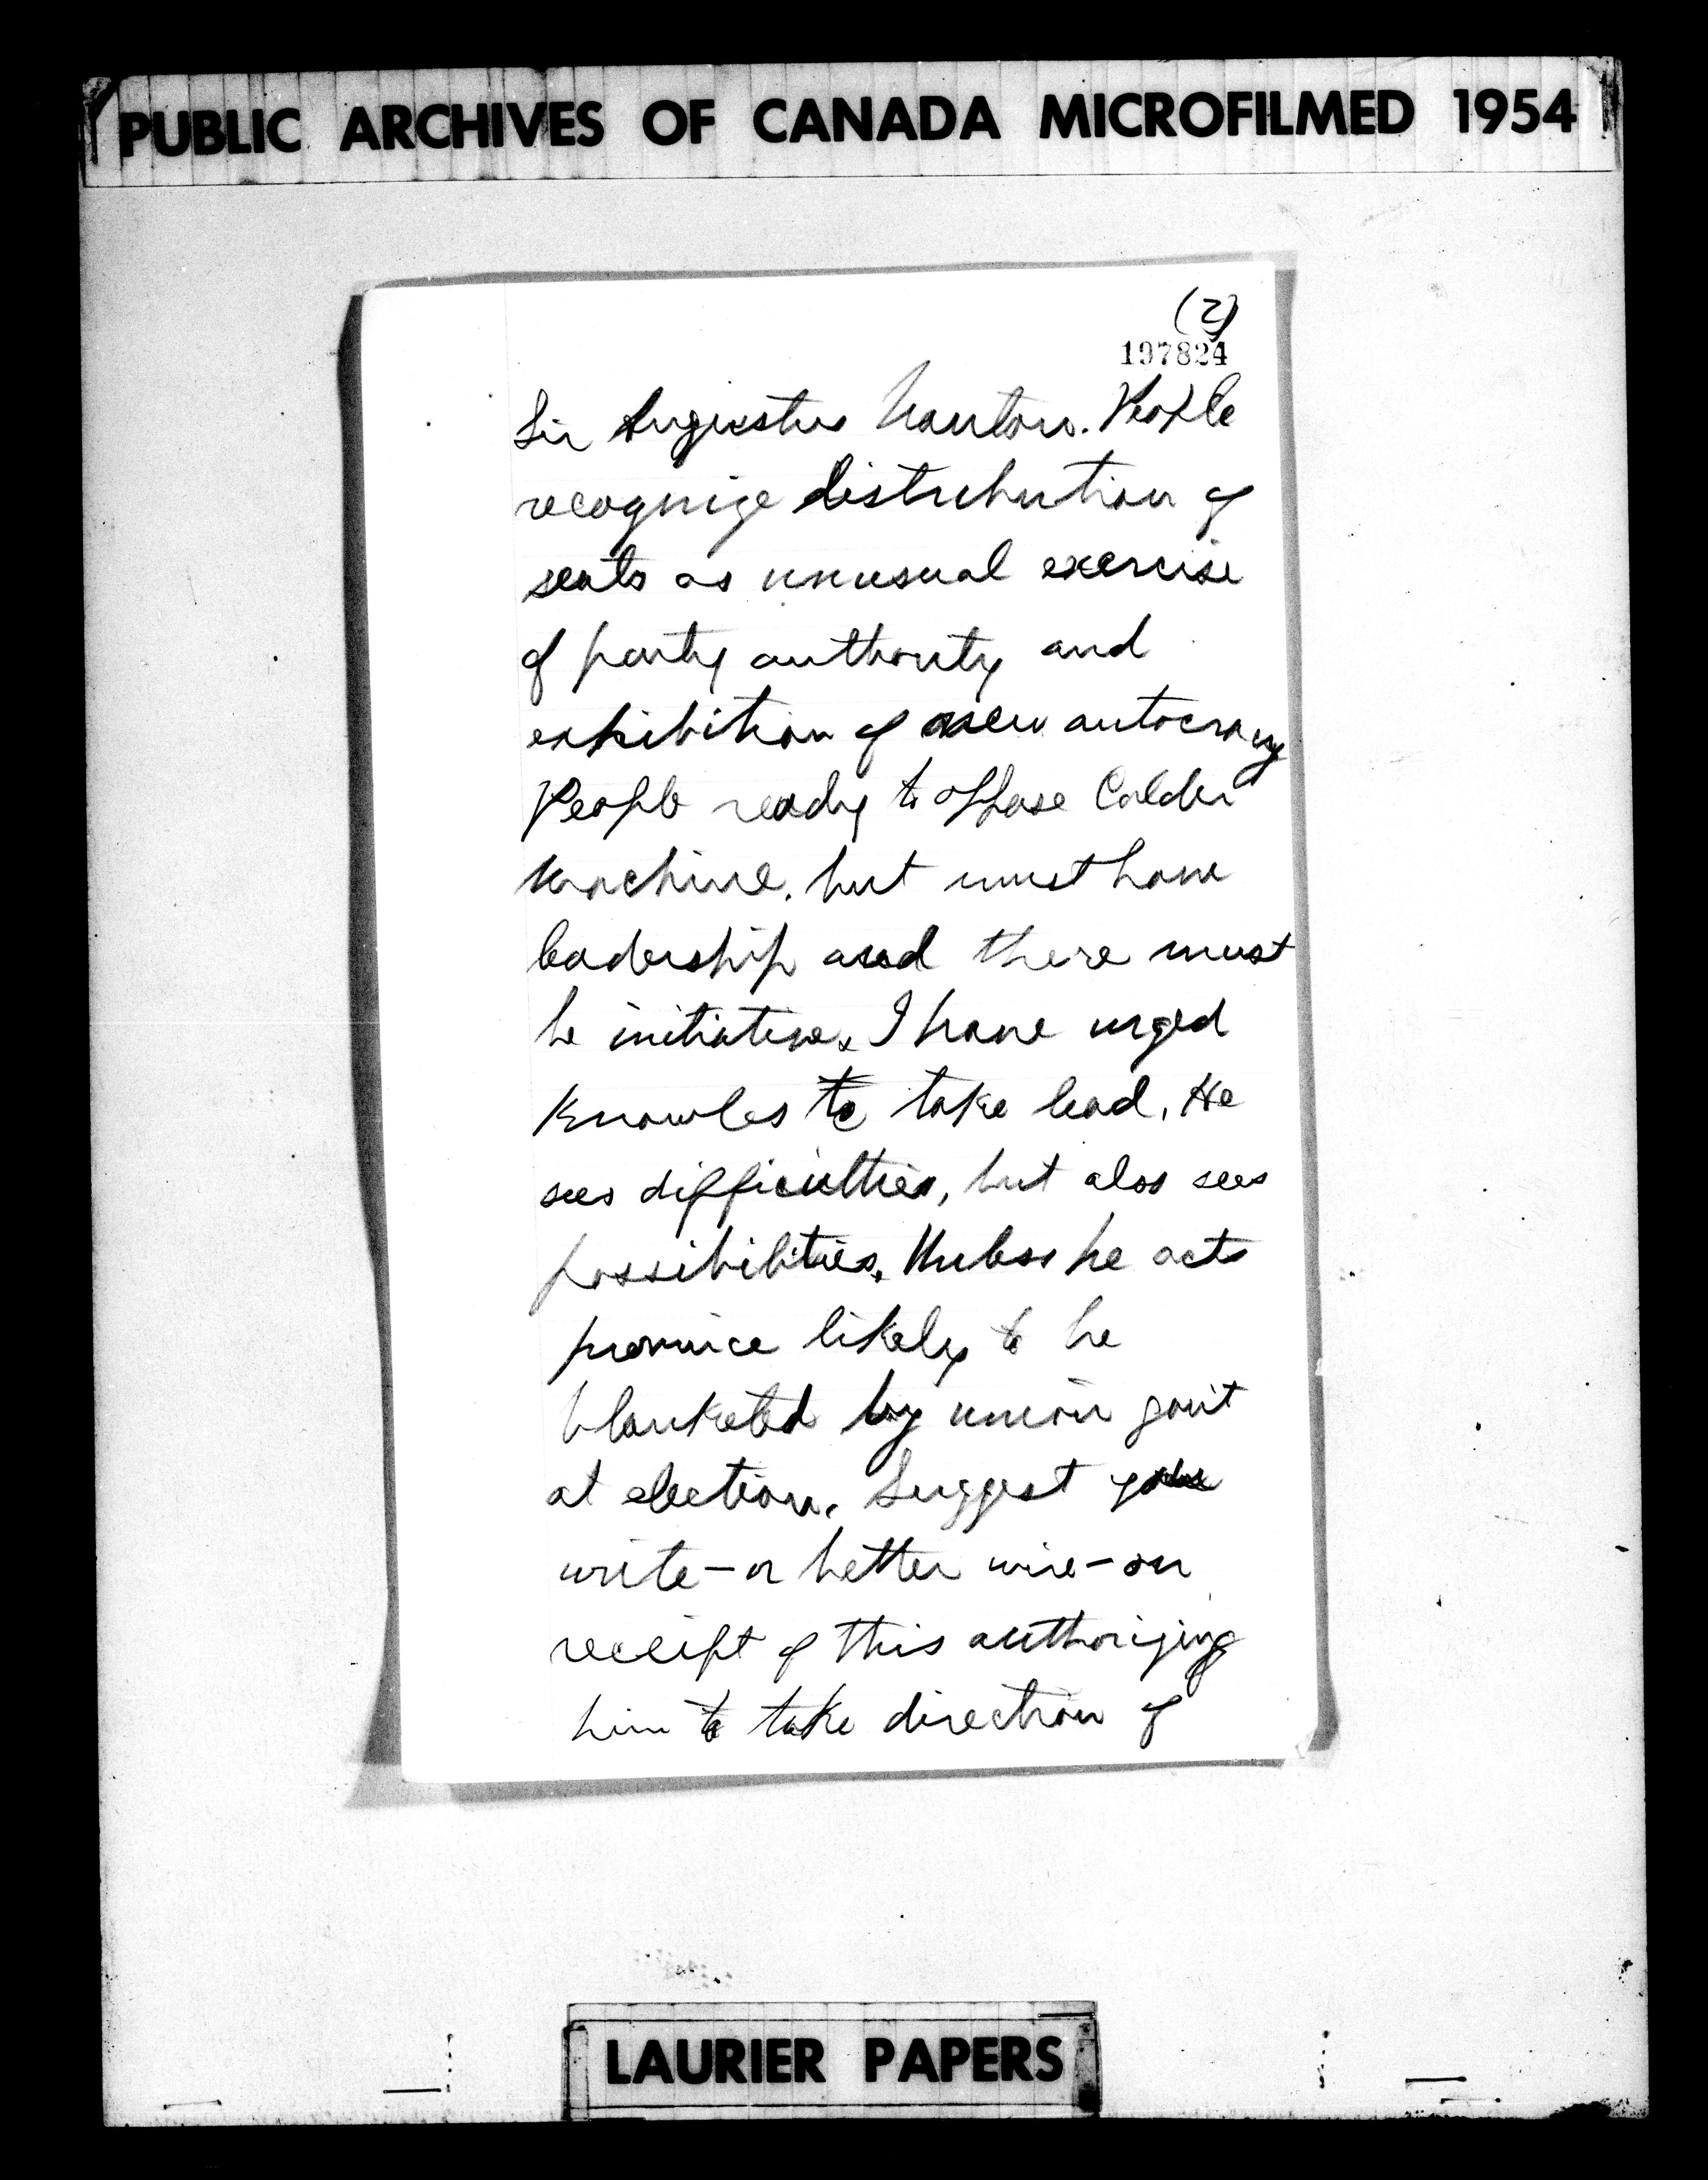 PUBLIC ARCHIVES OF CANADA MICROFILMED 1954
(2)
197824
Sir Augustus Nanton. People
recognize distribution of
seats as unusual exercise
of party authority and
exhibition of new autocracy
People ready to oppose Calder
machine, but must have
leadership and there must
be initiative. I have urged
Knowles to take lead. He
sees difficulties, but also sees
possibilities. Unless he acts
province likely to be
blanketed by union gov't
at election. Suggest you
write - or better wire - on
receipt of this authorizing
him to take direction of
LAURIER PAPERS